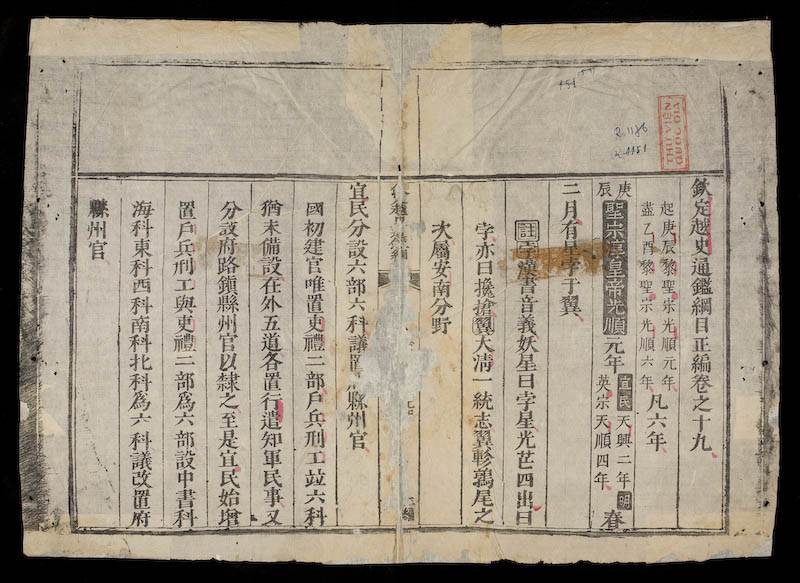 欽定越史通鑑綱目正編卷之十九
起庚辰黎聖宗光順元年
盡乙酉黎聖宗光順六年
凡六年
庚辰
聖宗淳皇帝光順元年
宜民天興二年明英宗天順四年
春
二月有星孛于翼
註孛漢書音義妖星曰孛星光芒四出曰
孛亦曰攙搶翼大清一統志翼軫鶉尾之
次屬安南分野
宜民分設六部六科議置縣州官
國初建官唯置吏禮二部戶兵刑工竝六科
猶未備設在外五道各置行遣知軍民事又
分設府路鎮縣州官以隸之至是宜民始增
置戶兵刑工與吏禮二部為六部設中書科
海科東科西科南科北科為六科議改置府
縣州官